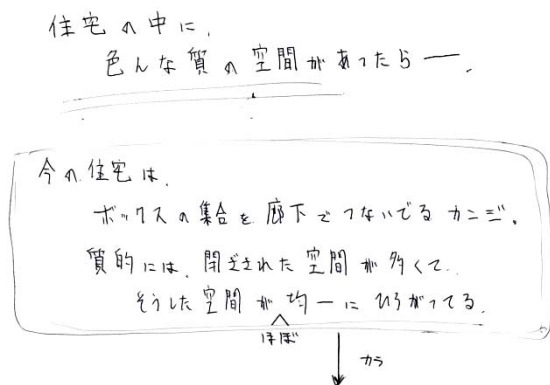 住宅の中に、
色んな質の空間があったらー、
今の住宅は、
ボックスの集合を廊下でつないでるカンジ。
質的には、閉ざされた空間が多くて、
そうした空間が均一にひろがってる。
ほぼ
カラ